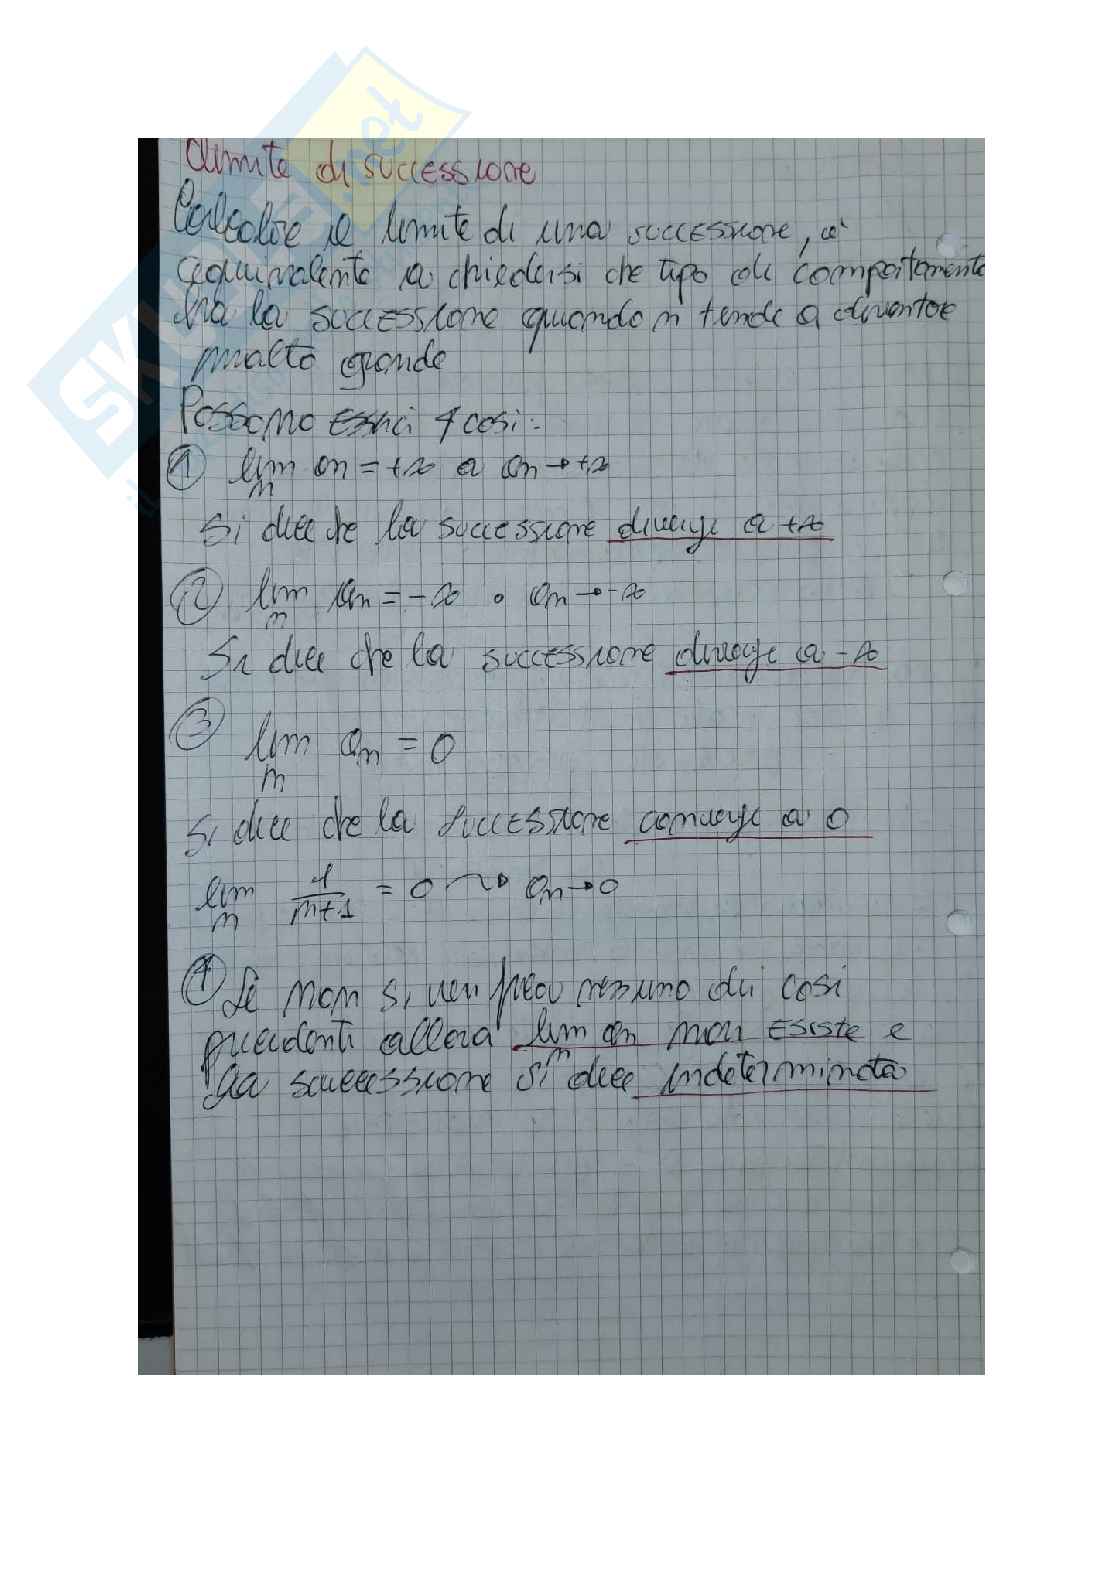 Limite di successione
Calcolare il limite di una successione, è
equivalente a chiedersi che tipo di comportamento
ha la successione quando n tende a diventare
molto grande
Possono esserci 4 casi:
① lim an = +∞ o an → +∞
n
Si dice che la successione diverge a +∞
② lim an = -∞ o an → -∞
n
Si dice che la successione diverge a -∞
③ lim an = 0
n
Si dice che la successione converge a 0
lim 1/n+1 = 0 ⇝ an → 0
n
④ Se non si verifica nessuno dei casi
precedenti allora lim an non esiste e
n
la successione si dice indeterminata
SKUOLA.net